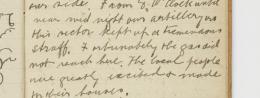 our side. From 9. O'clock until
near mid night our artillery on
this sector kept up a tremendous
straff. Fortunately the gas did
not reach here. The local people
were greatly excited & made
in their houses.